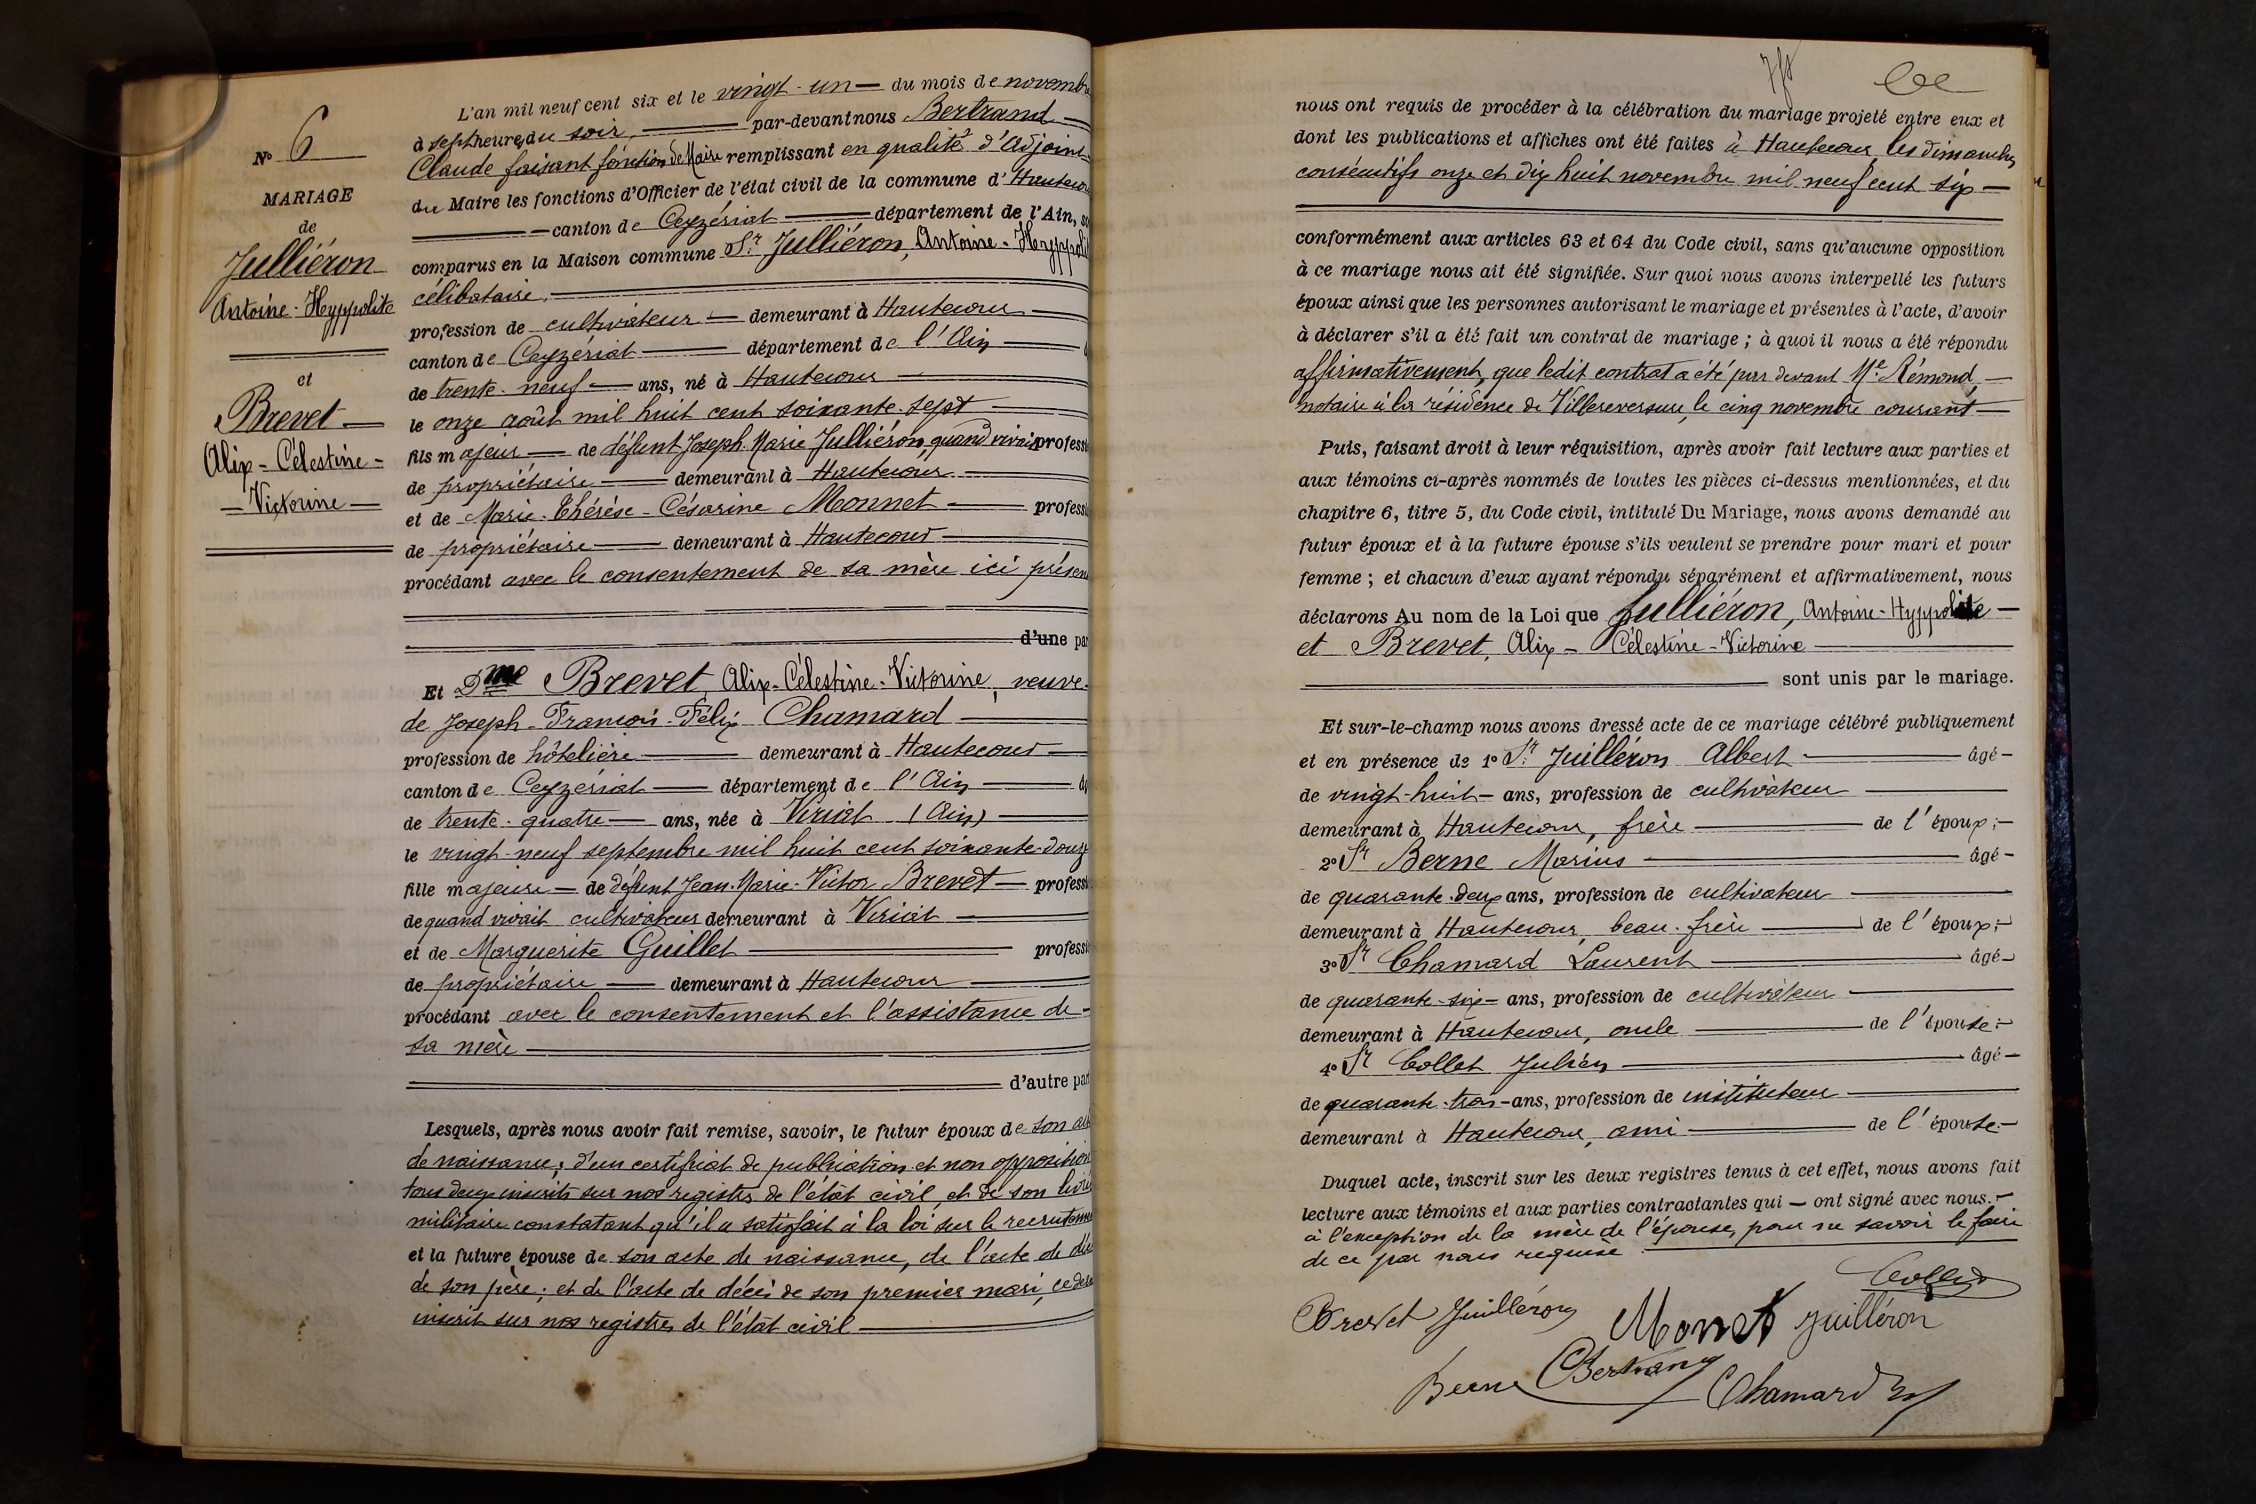 N° 6
MARIAGE
de
Julliéron
Antoine-Hyppolite
et
Brevet
Alix-Célestine-
Victorine
L'an mil neuf cent six et le vingt-un du mois de novembre
à sept heures du soir par-devant nous Bertrand
Claude faisant fonction de Maire remplissant en qualité d'Adjoint
du Maire les fonctions d'Officier de l'état civil de la commune d'Hautecour
canton de Ceyzériat département de l'Ain,
comparus en la Maison commune Sr. Julliéron, Antoine-Hyppolit
célibataire,
profession de cultivateur demeurant à Hautecour
canton de Ceyzériat département de l'Ain
de trente-neuf ans, né à Hautecour
le onze août mil huit cent soixante-sept
fils majeur de défunt Joseph-Marie Julliéron, quand vivait professi
de propriétaire demeurant à Hautecour
et de Marie-Thérèse-Césarine Monnet professi
de propriétaire demeurant à Hautecour
procédant avec le consentement de sa mère ici présen
d'une par
Et Dme Brevet, Alix-Célestine-Victorine, veuve
de Joseph-François-Félix Chamard
profession de hôtelière demeurant à Hautecour
canton de Ceyzériat département de l'Ain
de trente-quatre ans, née à Viriat (Ain)
le vingt-neuf septembre mil huit cent soixante-douze
fille majeure de défunt Jean-Marie-Victor Brevet professi
de quand vivait cultivateur demeurant à Viriat
et de Marguerite Guillet professi
de propriétaire demeurant à Hautecour
procédant avec le consentement et l'assistance de
sa mère
d'autre par
Lesquels, après nous avoir fait remise, savoir, le futur époux de son
de naissance; d'un certificat de publication et non opposition
tous deux inscrits sur nos registres de l'état civil, et de son livre
militaire constatant qu'il a satisfait à la loi sur le recrutement
et la future épouse de son acte de naissance, de l'acte de
de son père; et de l'acte de décès de son premier mari,
inscrit sur nos registres de l'état civil
nous ont requis de procéder à la célébration du mariage projeté entre eux et
dont les publications et affiches ont été faites à Hautecour les dimanches
consécutifs onze et dix huit novembre mil neuf cent six
conformément aux articles 63 et 64 du Code civil, sans qu'aucune opposition
à ce mariage nous ait été signifiée. Sur quoi nous avons interpellé les futurs
époux ainsi que les personnes autorisant le mariage et présentes à l'acte, d'avoir
à déclarer s'il a été fait un contrat de mariage; à quoi il nous a été répondu
affirmativement, que ledit contrat a été par devant Me. Rémond,
notaire à la résidence de Villereversure, le cinq novembre courant
Puis, faisant droit à leur réquisition, après avoir fait lecture aux parties et
aux témoins ci-après nommés de toutes les pièces ci-dessus mentionnées, et du
chapitre 6, titre 5, du Code civil, intitulé Du Mariage, nous avons demandé au
futur époux et à la future épouse s'ils veulent se prendre pour mari et pour
femme; et chacun d'eux ayant répondu séparément et affirmativement, nous
déclarons Au nom de la Loi que Julliéron, Antoine-Hyppolite
et Brevet, Alix-Célestine-Victorine
sont unis par le mariage.
Et sur-le-champ nous avons dressé acte de ce mariage célébré publiquement
et en présence de 1° Sr. Juilléron Albert âgé
de vingt-huit ans, profession de cultivateur
demeurant à Hautecour, frère de l'époux;
2° Sr Berne Marius âgé
de quarante-deux ans, profession de cultivateur
demeurant à Hautecour, beau-frère de l'époux;
3° Sr Chamard Laurent âgé
de quarante-six ans, profession de cultivateur
demeurant à Hautecour, oncle de l'épouse;
4° Sr Collet Julien âgé
de quarante-trois ans, profession de instituteur
demeurant à Hautecour, ami de l'épouse
Duquel acte, inscrit sur les deux registres tenus à cet effet, nous avons fait
lecture aux témoins et aux parties contractantes qui ont signé avec nous.
à l'exception de la mère de l'épouse, pour ne savoir le faire
de ce par nous requise
Collet
Brevet Juilléron Monet Juilléron
Berne Bertrand Chamard